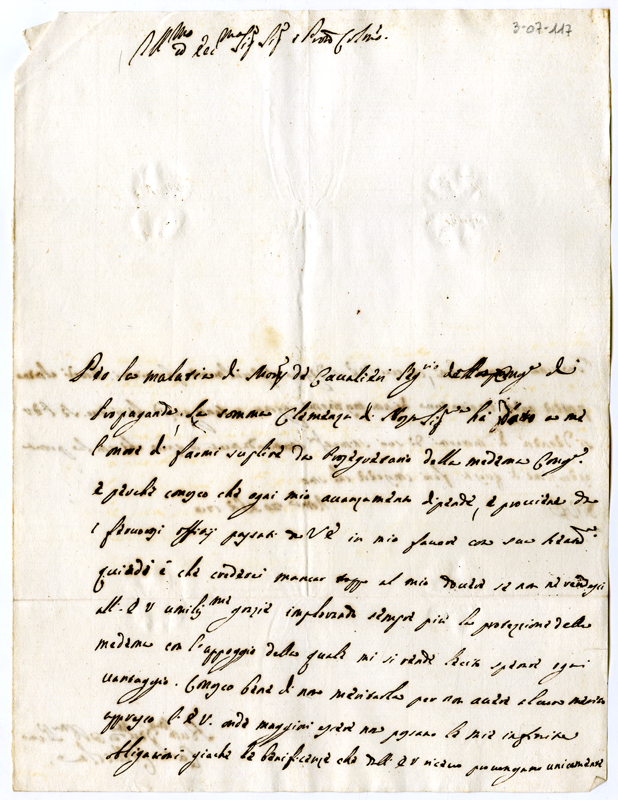 3-07-117
Ill.mo ed Ecc.mo Sig.r Sig.r e Pron Colmo.
Per la malatia di Mons.r de Cavalieri Seg.rio della Cong.e di
Propaganda. La somma Clemenza di Nro Sig.re ha dato a me
l'onore di farmi suplire da Prosegretario della medema Cong.e
e perche conosco che ogni mio avanzamento dipende, e proviene da
i fervorosi officj passati da V E in mio favore con sua
quindi è che crederei mancar tropp al mio dovere se non ne rendessi
all' E V umilis.me grazie implorando sempre più la protezzione della
medema con l'appoggio della quale mi si rende lecito sperare ogni
vantaggio. Conosco bene di non meritarla per non avere alcun merito
appresso l' E V. onde maggiori sono le mie infinite
obligazioni giache le beneficenze che dall' E V ricevo provengono unicamente